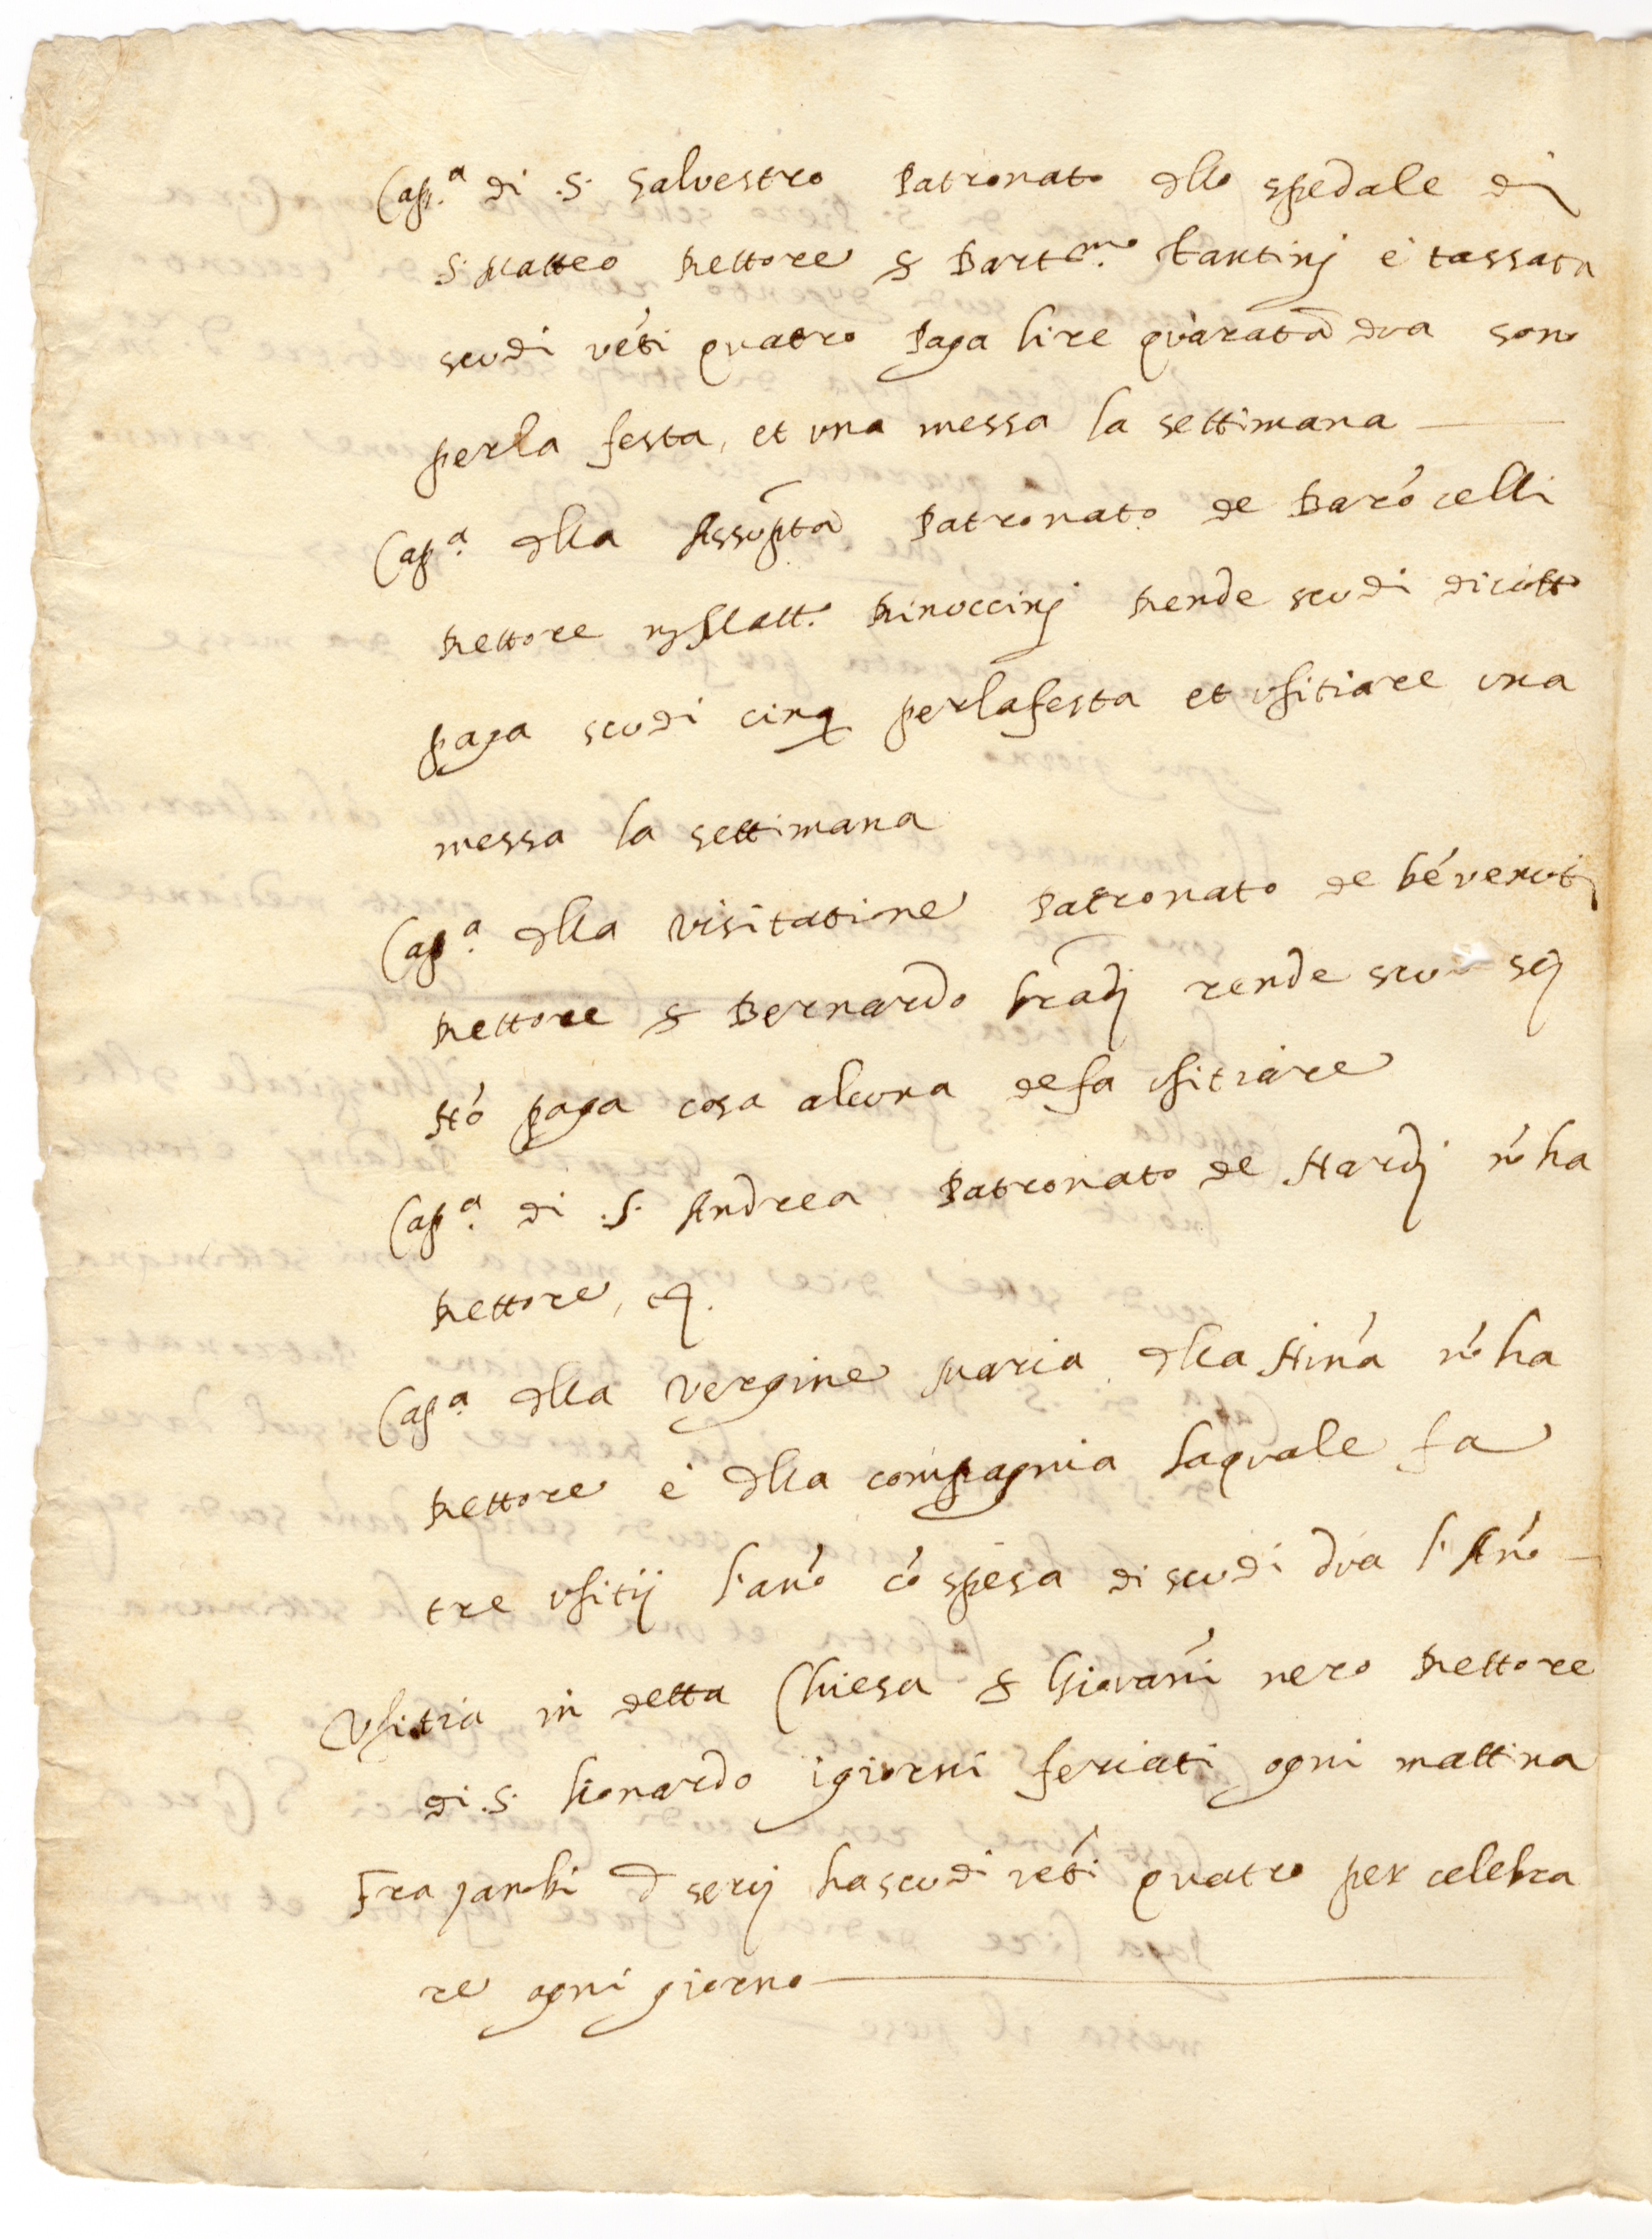 Cap.ª di .S. Salvestro Patronato dllo spedale di
S. Matteo Rettore S Bartmo. Tantinj è tassata
scudi véti quatro Paga lire quaratā dua sono
per la festa, et una messa la settimana
Cap.ª dlla Assūpta Patronato de Barōcelli
Rettore Matt.º Rinuccinj Rende scudi diciotto
paga scudi cinq perlafesta et ufitiare una
messa la settimana
Cap.ª dlla visitatione Patronato de bévenuti
Rettore S Bernardo rende scudi sej
Nō paga cosa alcuna defa ufitiare
Cap.ª di .S. Andrea Patronato de Nardj nō ha
Rettore, etc.
Cap.ª dlla Vergine Maria dlla nō ha
Rettore è dlla compagnia laquale fa
tre ufitij l'anō cō spesa di scudi dua l'Anō
Ufitia in detta Chiesa S Giovanī nero Rettore
di .S. Lionardo igiorni feriati ogni mattina
Fra zanobi d servj hascudi véti quatro per celebra
re ogni giorno